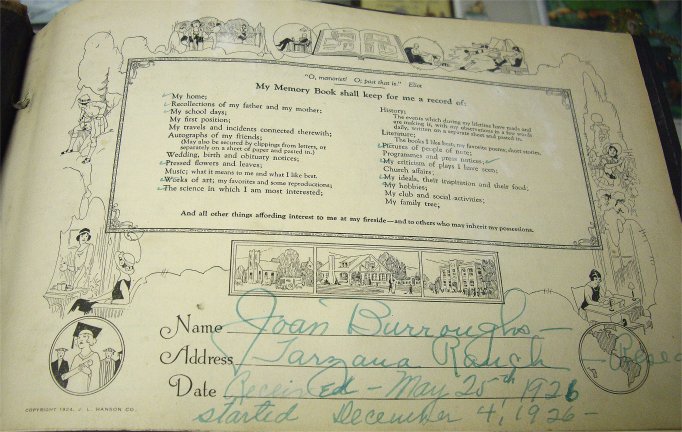 "O, memories! O, past that is." Eliot
My Memory Book shall keep for me a record of:
My home;
Recollections of my father and my mother;
My school days;
My first position;
My travels and incidents connected therewith;
Autographs of my friends;
(May also be secured by clippings from letters, or
separately on a sheet of paper and pasted in.)
Wedding, birth and obituary notices;
Pressed flowers and leaves;
Music; what it means to me and what I like best.
Works of art; my favorites and some reproductions;
The science in which I am most interested;
History;
The events which during my lifetime have made and
are making it, with my observations in a few words
daily, written on a separate sheet and pasted in.
Literature;
The books I like best, my favorite poems, short stories.
Pictures of people of note;
Programmes and press notices;
My criticism of plays I have seen;
Church affairs;
My ideals, their inspiration and their food;
My hobbies;
My club and social activities;
My family tree;
And all other things affording interest to me at my fireside—and to others who may inherit my possessions.
Name Joan Burroughs —
Address Tarzana Ranch — Reseda
Date Received — May 25th, 1926
started December 4, 1926 —
COPYRIGHT 1924, J. L. HANSON CO.